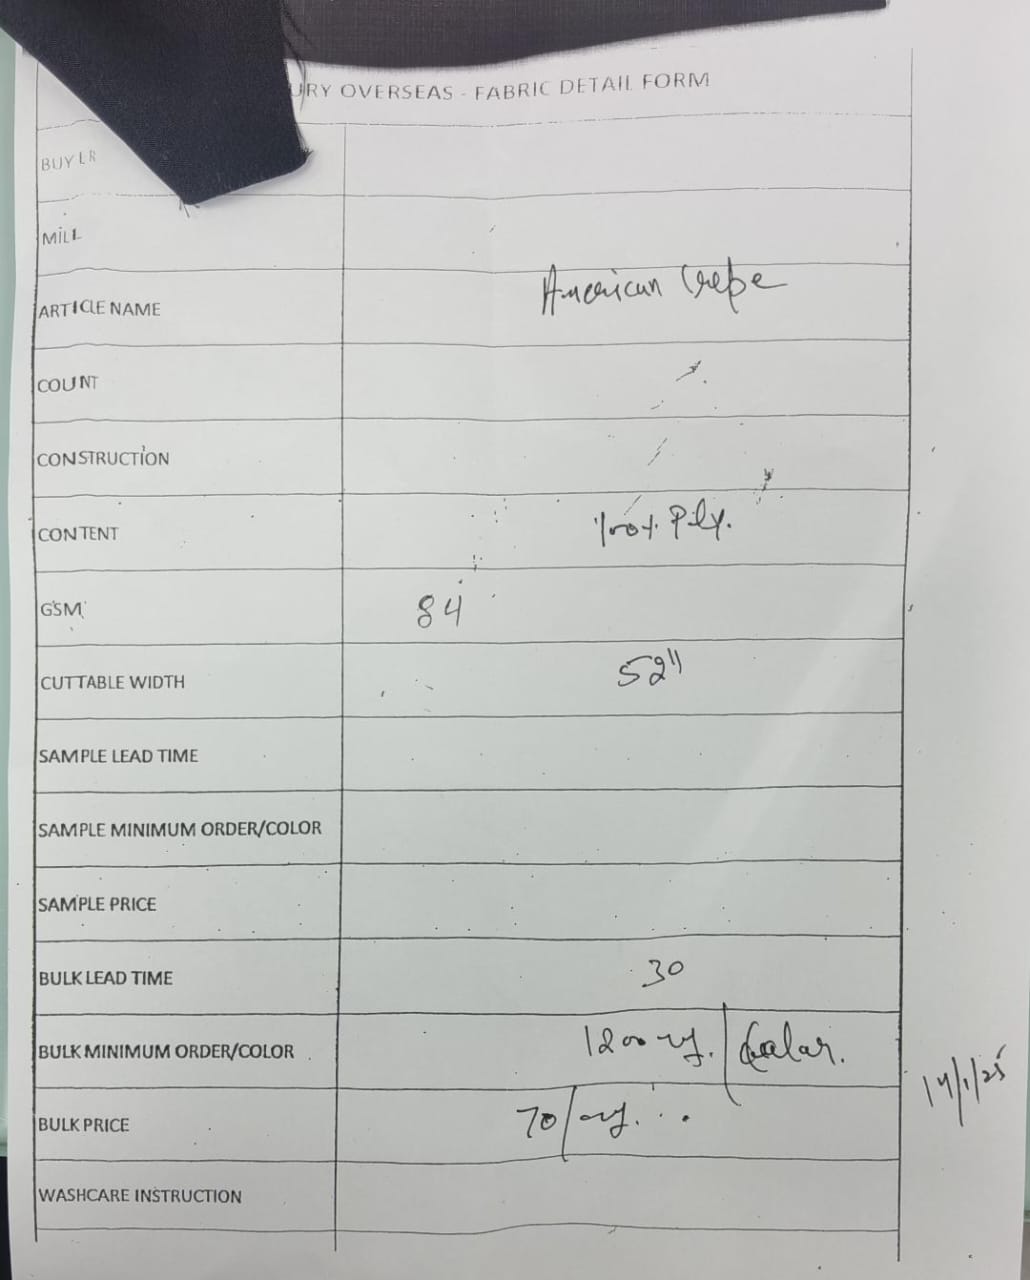 URY OVERSEAS - FABRIC DETAIL FORM
BUYER
MILL
ARTICLE NAME American Crepe
COUNT
CONSTRUCTION
CONTENT 100% Ply.
GSM 84
CUTTABLE WIDTH 52"
SAMPLE LEAD TIME
SAMPLE MINIMUM ORDER/COLOR
SAMPLE PRICE
BULK LEAD TIME 30
BULK MINIMUM ORDER/COLOR 1200 / Color.
BULK PRICE 70/
WASHCARE INSTRUCTION